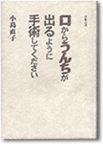 口からうんちが
出るように
手術してください
小島直子